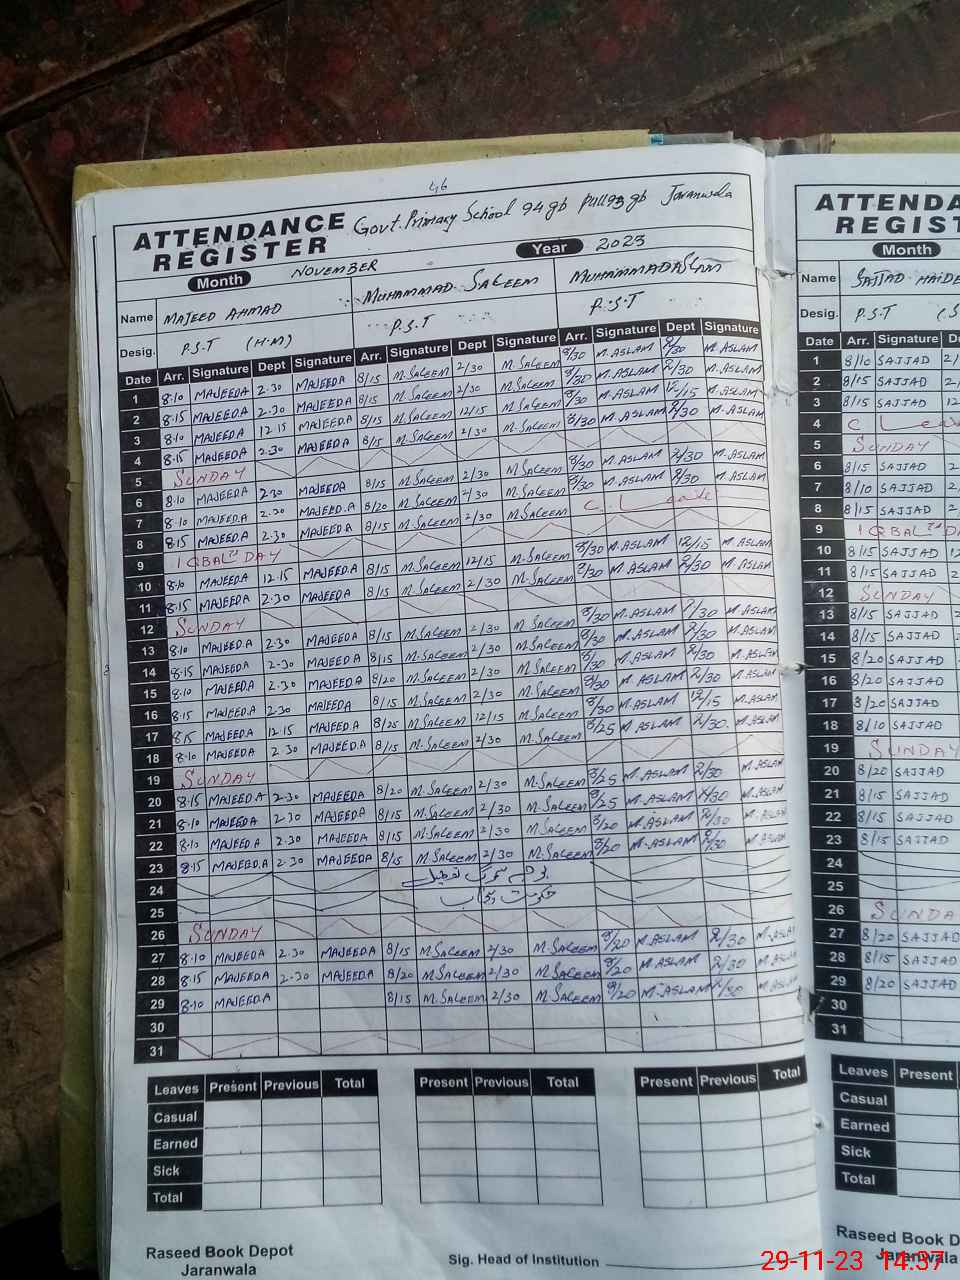 46
ATTENDANCE REGISTER Govt. Primary School 94 gb Pull 93 gb Jaranwala
Month NOVEMBER Year 2023
Name MAJEED AHMAD MUHAMMAD SALEEM MUHAMMAD ASLAM
Desig. P.S.T (H.M) P.S.T P.S.T
Date Arr. Signature Dept Signature Arr. Signature Dept Signature Arr. Signature Dept Signature
1 8.10 MAJEEDA 2.30 MAJEEDA 8/15 M.SALEEM 2/30 M.SALEEM 8/30 M.ASLAM 2/30 M.ASLAM
2 8.15 MAJEEDA 2.30 MAJEEDA 8/15 M.SALEEM 2/30 M.SALEEM 8/30 M.ASLAM 2/30 M.ASLAM
3 8.10 MAJEEDA 12.15 MAJEEDA 8/15 M.SALEEM 12/15 M.SALEEM 8/30 M.ASLAM 12/15 M.ASLAM
4 8.15 MAJEEDA 2.30 MAJEEDA 8/15 M.SALEEM 2/30 M.SALEEM 8/30 M.ASLAM 2/30 M.ASLAM
5 SUNDAY
6 8.10 MAJEEDA 2.30 MAJEEDA 8/15 M.SALEEM 2/30 M.SALEEM 8/30 M.ASLAM 2/30 M.ASLAM
7 8.10 MAJEED.A 2.30 MAJEED.A 8/20 M.SALEEM 2/30 M.SALEEM 8/30 M.ASLAM 2/30 M.ASLAM
8 8.15 MAJEED.A 2.30 MAJEED.A 8/15 M.SALEEM 2/30 M.SALEEM C. Leave
9 IQBAL DAY
10 8.10 MAJEEDA 12.15 MAJEEDA 8/15 M.SALEEM 12/15 M.SALEEM 8/30 M.ASLAM 12/15 M.ASLAM
11 8.15 MAJEEDA 2.30 MAJEEDA 8/15 M.SALEEM 2/30 M.SALEEM 8/30 M.ASLAM 2/30 M.ASLAM
12 SUNDAY
13 8.10 MAJEED.A 2.30 MAJEEDA 8/15 M.SALEEM 2/30 M.SALEEM 8/30 M.ASLAM 2/30 M.ASLAM
14 8.15 MAJEED.A 2.30 MAJEED.A 8/15 M.SALEEM 2/30 M.SALEEM 8/30 M.ASLAM 2/30 M.ASLAM
15 8.10 MAJEED.A 2.30 MAJEED.A 8/20 M.SALEEM 2/30 M.SALEEM 8/30 M.ASLAM 2/30 M.ASLAM
16 8.15 MAJEED.A 2.30 MAJEEDA 8/15 M.SALEEM 2/30 M.SALEEM 8/30 M.ASLAM 2/30 M.ASLAM
17 8.15 MAJEED.A 12.15 MAJEED.A 8/25 M.SALEEM 12/15 M.SALEEM 8/30 M.ASLAM 12/15 M.ASLAM
18 8.10 MAJEED.A 2.30 MAJEED.A 8/15 M.SALEEM 2/30 M.SALEEM 8/25 M.ASLAM 2/30 M.ASLAM
19 SUNDAY
20 8.15 MAJEED.A 2.30 MAJEEDA 8/20 M.SALEEM 2/30 M.SALEEM 8/25 M.ASLAM 2/30 M.ASLAM
21 8.10 MAJEEDA 2.30 MAJEEDA 8/15 M.SALEEM 2/30 M.SALEEM 8/25 M.ASLAM 2/30 M.ASLAM
22 8.10 MAJEEDA 2.30 MAJEEDA 8/15 M.SALEEM 2/30 M.SALEEM 8/20 M.ASLAM 2/30 M.ASLAM
23 8.15 MAJEED.A 2.30 MAJEEDA 8/15 M.SALEEM 2/30 M.SALEEM 8/20 M.ASLAM 2/30 M.ASLAM
24 تعطیل
25 حکومت پنجاب
26 SUNDAY
27 8.10 MAJEED.A 2.30 MAJEED.A 8/15 M.SALEEM 2/30 M.SALEEM 8/20 M.ASLAM 2/30 M.ASLAM
28 8.15 MAJEED.A 2.30 MAJEED.A 8/20 M.SALEEM 2/30 M.SALEEM 8/20 M.ASLAM 2/30 M.ASLAM
29 8.10 MAJEED.A 8/15 M.SALEEM 2/30 M.SALEEM 8/20 M.ASLAM 2/30 M.ASLAM
30
31
Leaves Present Previous Total Present Previous Total Present Previous Total
Casual
Earned
Sick
Total
Raseed Book Depot
Jaranwala
Sig. Head of Institution
ATTENDANCE
REGISTER
Month
Name SAJJAD HAIDE
Desig. P.S.T
Date Arr. Signature
1 8/10 SAJJAD
2 8/15 SAJJAD
3 8/15 SAJJAD
4 C Lea
5 SUNDAY
6 8/15 SAJJAD
7 8/10 SAJJAD
8 8/15 SAJJAD
9 IQBAL DA
10 8/15 SAJJAD
11 8/15 SAJJAD
12 SUNDAY
13 8/15 SAJJAD
14 8/15 SAJJAD
15 8/20 SAJJAD
16 8/20 SAJJAD
17 8/20 SAJJAD
18 8/10 SAJJAD
19 SUNDAY
20 8/20 SAJJAD
21 8/15 SAJJAD
22 8/15 SAJJAD
23 8/15 SAJJAD
24
25
26 SUNDAY
27 8/20 SAJJAD
28 8/15 SAJJAD
29 8/20 SAJJAD
30
31
Leaves Present
Casual
Earned
Sick
Total
Raseed Book D
Jaranwala
29-11-23 14:37